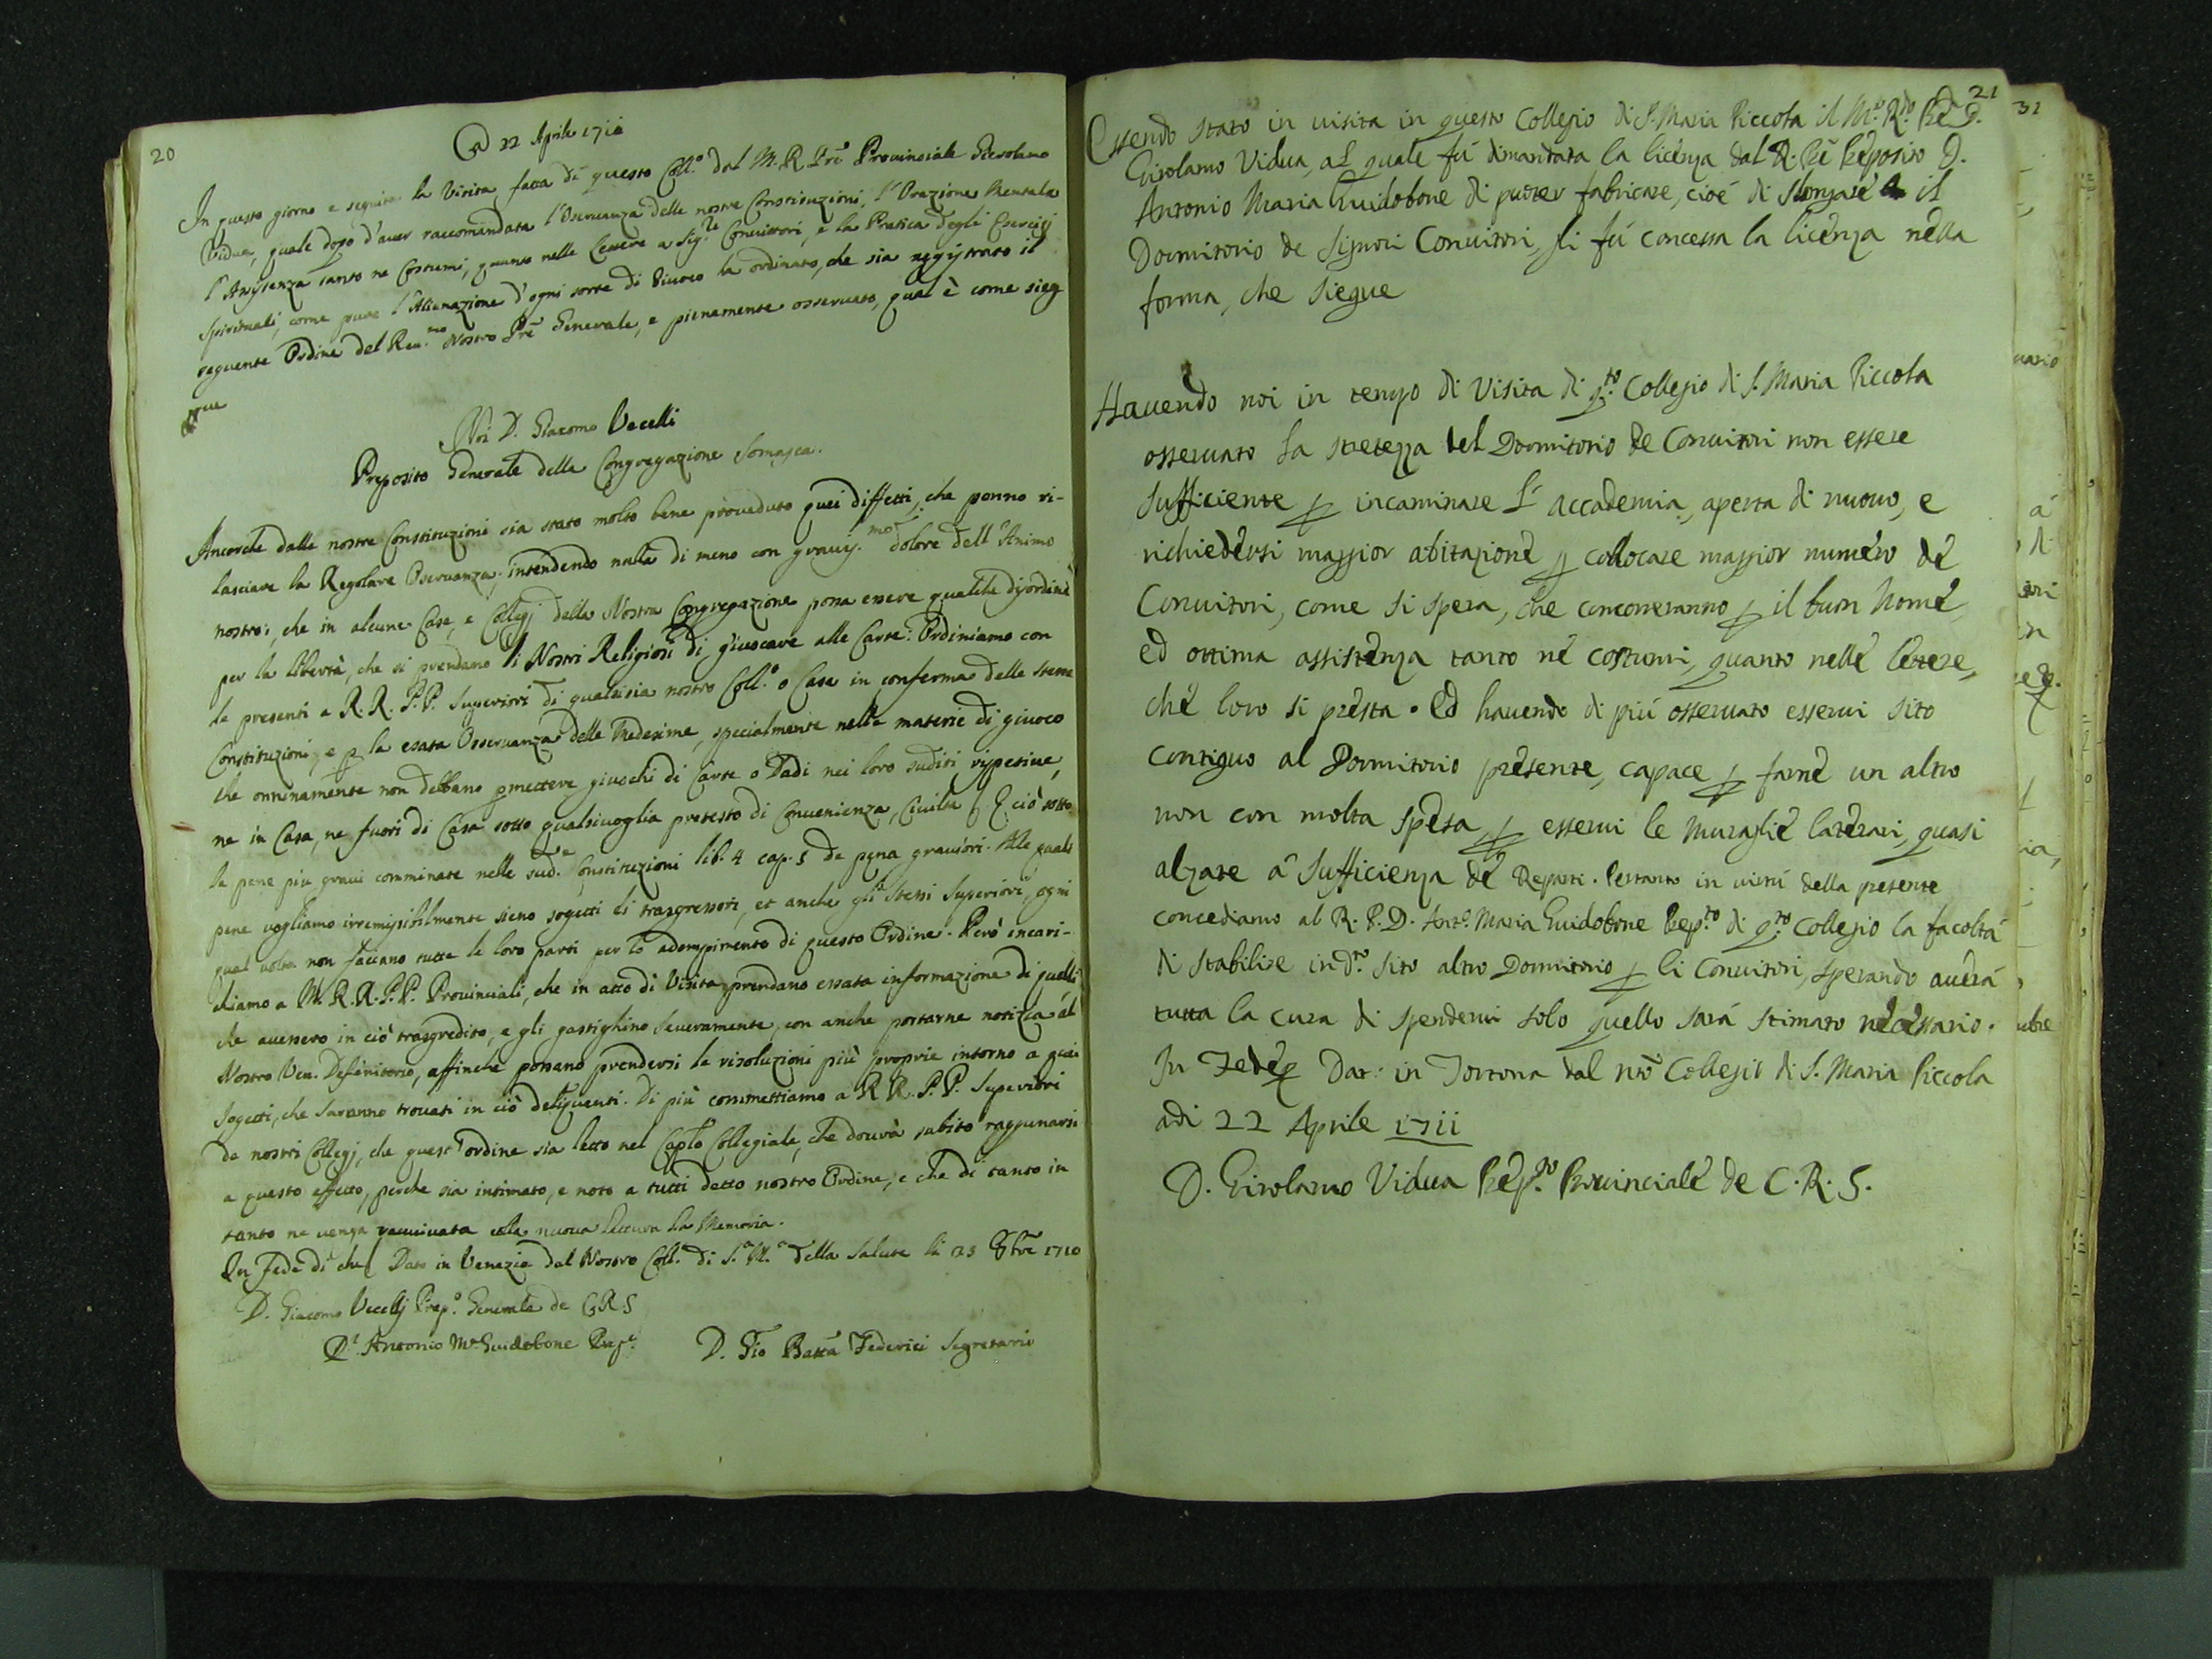 20
Adi 22 Aprile 1711
In questo giorno è seguita la Visita fatta di questo Coll.º dal M. R. Prē Provinciale Gierolamo
Vidua, quale dopo d'aver raccomandata l'Osservanza delle nostre Constituzioni, l'Orazione Mentale
l'Assistenza tanto ne Costumi, quanto nelle Lettere a Sig.ri Convittori, e la Pratica degli Esercizj
Spirituali, come pure l'Alienazione d'ogni sorte di Giuoco ha ordinato, che sia reggistrato il
seguente Ordine del Reu.mo Nostro Prē Generale, e pienamente osseruato, qual è come sieg
gue
Noi D. Giacomo Vecelli
Preposito Generale della Congregazione Somasca.
Ancorche dalle nostre Constituzioni sia stato molto bene proueduto quei diffetti, che ponno ri-
lasciare la Regolare Oseruanza; intendendo nulla di meno con grauis.mo dolore dell'Animo
nostro, che in alcune Case, e Collegj della Nostra Congregazione possa essere qualche disordine
per la libertà, che si prendano li Nostri Religiosi di giuocare alle Carte: Ordiniamo con
le presenti a R. R. P. P. Superiori di qualsisia nostro Coll.º o Casa in conferma delle stesse
Constituzioni, e p la esata Osseruanza delle Medesime, specialmente nelle materie di giuoco
che onninamente non debbano pmettere giuochi di Carte o Dadi nei loro suditi rispetiue,
ne in Casa, ne fuori di Casa sotto qualsiuoglia pretesto di Conuenienza, Ciuiltà E ciò sotto
le pene più graui comminate nelle sud.e Constituzioni lib. 4 cap. 5 de pena grauiori. Alle quali
pene uogliamo irremissibilmente sieno sogetti li trasgressori, et anche gli stessi Superiori, ogni
qual uolta non faciano tutte le loro parti per lo adempimento di questo Ordine. Però incari-
chiamo a M. R. R. P. P. Prouinciali, che in atto di Visita prendano essata informazione di quelli,
che auessero in ciò trasgredito, e gli gastighino seueramente, con anche portarne notizia al
Nostro Ven. Definitorio, affinche possano prendersi le risoluzioni più proprie intorno a quei
Sogetti, che saranno trouati in ciò deliquenti. Di più commettiamo a R. R. P. P. Superiori
de nostri Collegj, che quest'ordine sia letto nel Caplo Collegiale, che dourà subito ragunarsi
a questo effetto, perche sia intimato, e noto a tutti detto nostro Ordine, e che di tanto in
tanto ne uenga rauuiuata colla nuoua lettura la Memoria.
In Fede di che Dato in Venezia dal Nostro Coll.º di S.a M.a della Salute li 23 1710
D. Giacomo Vecellj Prep.º Generale de C. R. S
D. Antonio M.a Guidobone Prep.º D. Gio Batta Federici Segretario
21
Essendo stato in uisita in questo Collegio di S. Maria Piccola il M.º R.do Prē D.
Girolamo Vidua, al quale fú dimandata la licenza dal R. Prē Preposito D.
Antonio Maria Guidobone di puoter fabricare, cioé di slongare il
Dormitorio de Signori Conuitori, gli fú concessa la licenza nella
forma, che siegue
Hauendo noi in tempo di Visita di q.to Collegio di S. Maria Piccola
osseruato la stretezza del Dormitorio de Conuitori non essere
sufficiente p incaminare l'accademia, aperta di nuouo, e
richiedersi maggior abitazione p collocare maggior numero de
Conuitori, come si spera, che concorreranno p il buon Nome,
ed ottima assistenza tanto ne costumi, quanto nelle letere,
che loro si presta. Ed hauendo di piú osseruato esserui sito
contiguo al Dormitorio presente, capace p farne un altro
non con molta spesa, p esserui le muraglie laterari, quasi
alzate á sufficienza de Reparti. Pertanto in uirtú della presente
concediamo al R. P. D. Ant.º Maria Guidobone Prep.to di q.to Collegio la facoltá
di stabilire in d.to sito altro Dormitorio p li Conuitori, sperando auerá
tutta la cura di spenderui solo quello sará stimato necessario.
In Fede Dat: in Tortona dal nrō Collegio di S. Maria Piccola
adi 22 Aprile 1711
D. Girolamo Vidua Prep.to Prouinciale de C. R. S.
31